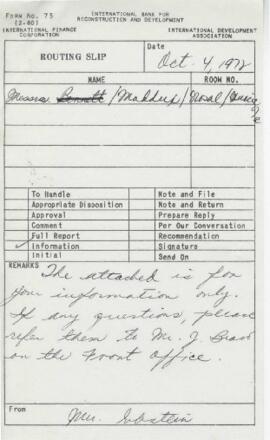 FORM No. 75
(2-60)
INTERNATIONAL BANK FOR
RECONSTRUCTION AND DEVELOPMENT
INTERNATIONAL FINANCE
CORPORATION
INTERNATIONAL DEVELOPMENT
ASSOCIATION
ROUTING SLIP
Date
Oct. 4, 1972
NAME
ROOM NO.
Messrs Bennett/Maddux/
To Handle
Note and File
Appropriate Disposition
Note and Return
Approval
Prepare Reply
Comment
Per Our Conversation
Full Report
Recommendation
✓ Information
Signature
Initial
Send On
REMARKS
The attached is for
your information only.
If any questions, please
refer them to Mr. J.
on the Front Office.
From